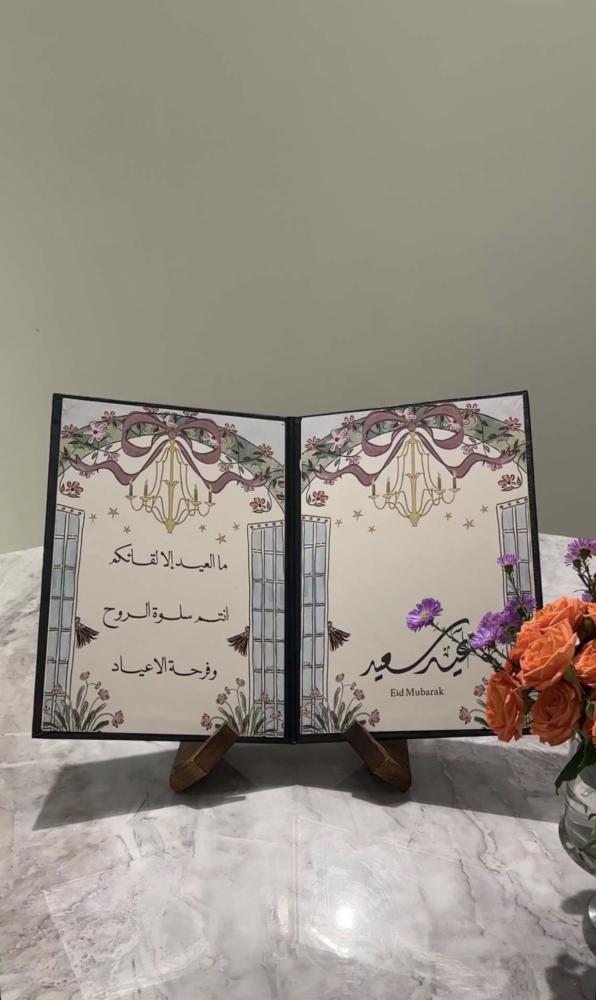 ما العيد إلا لقائكم
انتم سلوة الروح
وفرحة الاعياد
عيد سعيد
Eid Mubarak